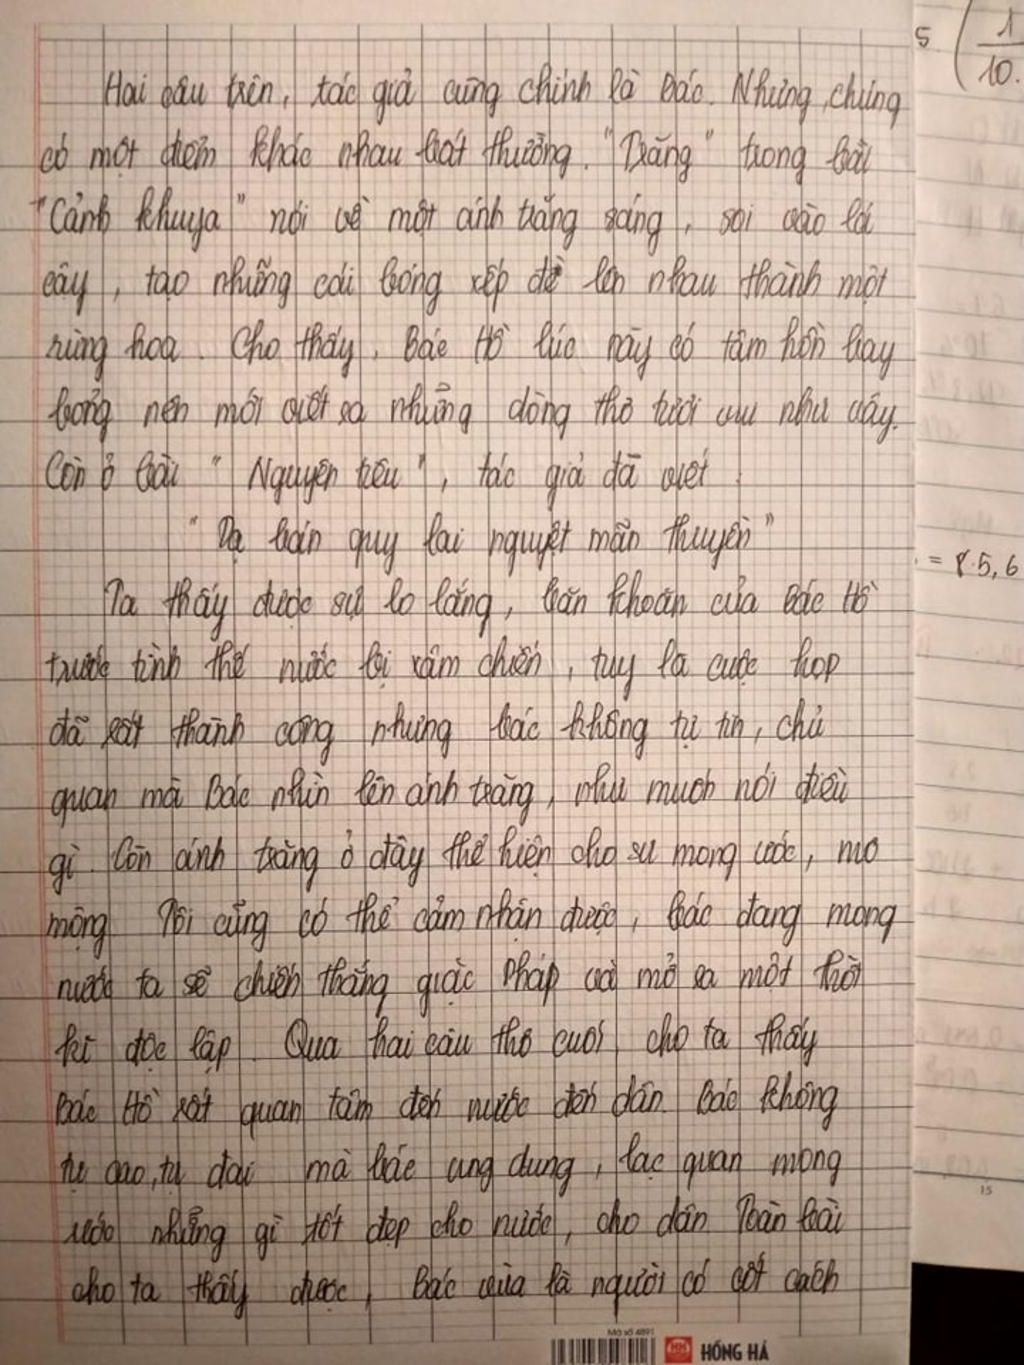 Hai câu trên, tác giả cũng chính là Bác. Nhưng, chúng
có một điểm khác nhau bất thường. "Trăng" trong bài
"Cảnh khuya" nói về một ánh trăng sáng, soi vào lá
cây, tạo những cái bóng xếp đè lên nhau thành một
rừng hoa. Cho thấy, Bác Hồ lúc này có tâm hồn bay
bổng nên mới viết ra những dòng thơ tươi vui như vậy.
Còn ở bài "Nguyên tiêu", tác giả đã viết
"Dạ bán quy lai nguyệt mãn thuyền"
Ta thấy được sự lo lắng, băn khoăn của Bác Hồ
trước tình thế nước bị xâm chiến, tuy là cuộc họp
đã rất thành công nhưng bác không tự tin, chủ
quan mà Bác nhìn lên ánh trăng, như muốn nói điều
gì. Còn ánh trăng ở đây thể hiện cho sự mong ước, mơ
mộng Tôi cũng có thể cảm nhận được, bác đang mong
nước ta sẽ chiến thắng giặc Pháp và mở ra một thời
kì độc lập. Qua hai câu thơ cuối, cho ta thấy
Bác Hồ rất quan tâm đến nước đến dân. Bác không
tự cao, tự đại mà bác ung dung, lạc quan mong
ước những gì tốt đẹp cho nước, cho dân Toàn bài
cho ta thấy được, Bác vừa là người có cốt cách
Mã số 4891
HH HỒNG HÀ
5 ( 1
10.
= 8.5,6
15